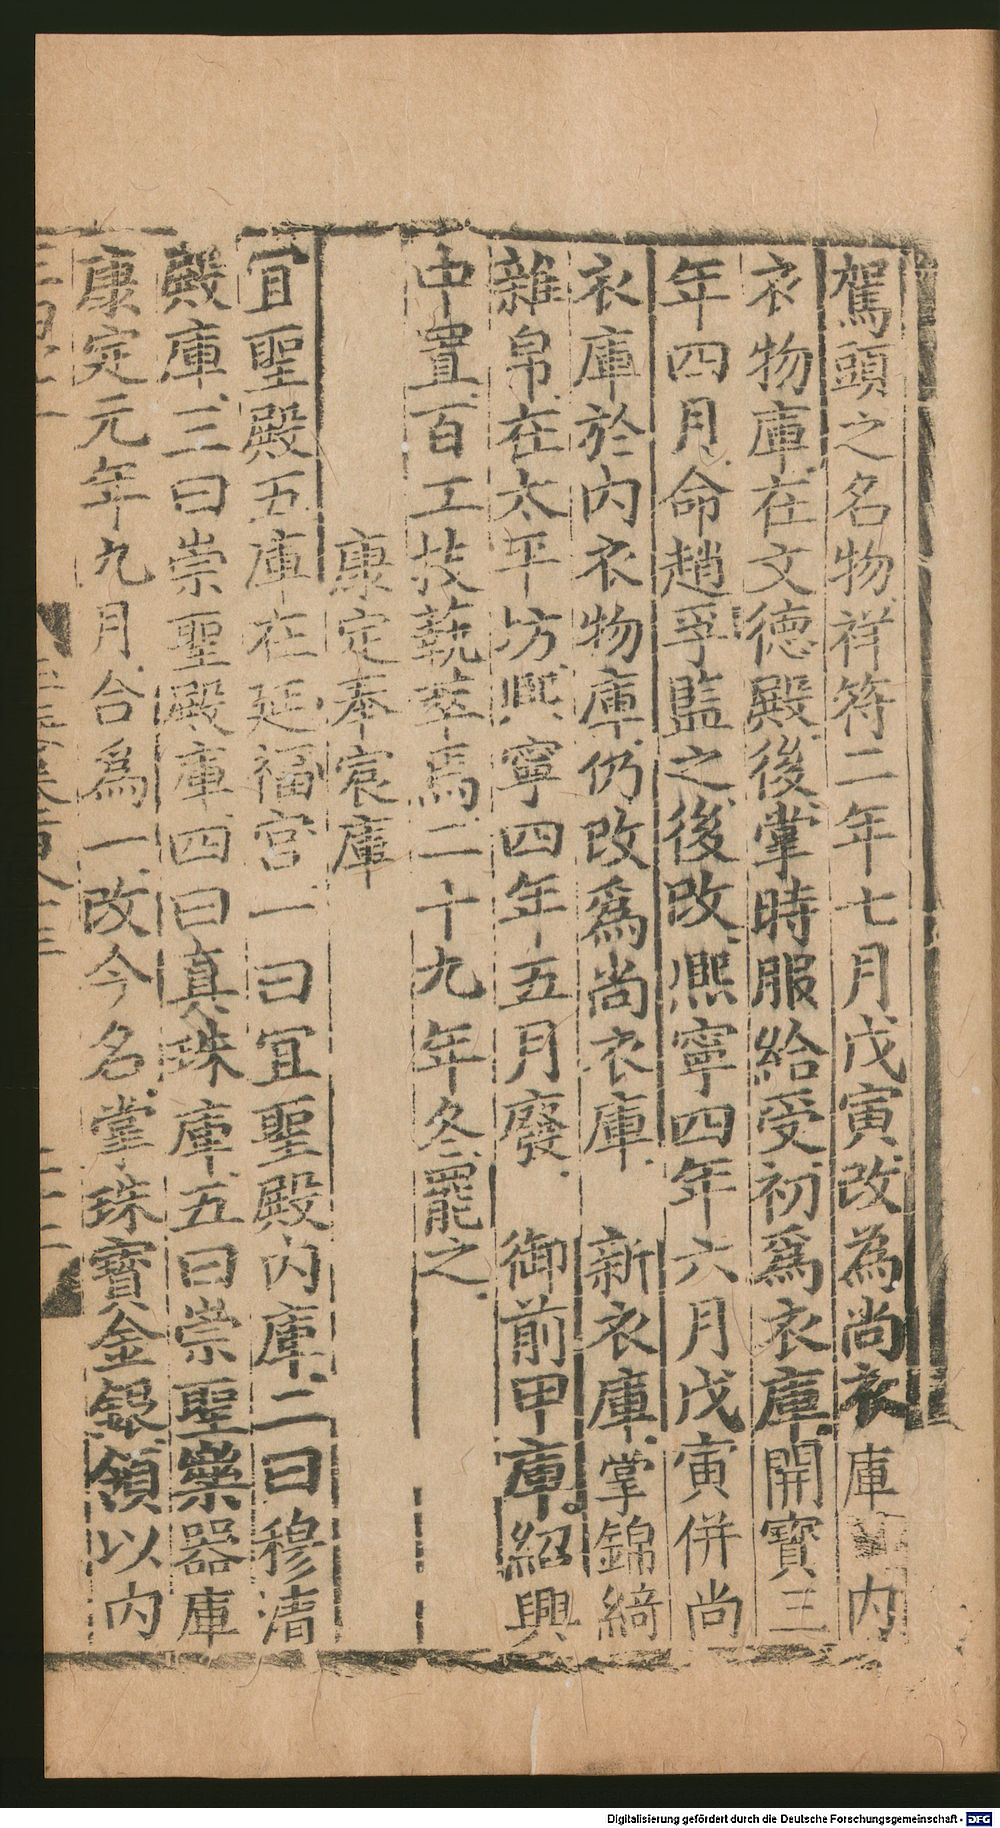 駕頭之名物祥符二年七月戊寅改為尚衣庫 内
衣物庫在文德殿後掌時服給受初爲衣庫開寶三
年四月命趙孚監之後改熈寧四年六月戊寅併尚
衣庫於内衣物庫仍改爲尚衣庫 新衣庫掌錦綺
雜帛在太平坊熈寧四年五月廢 御前甲庫紹興
中置百工技藝萃焉二十九年冬罷之
康定奉宸庫
宜聖殿五庫在延福宮一曰宜聖殿内庫二曰穆清
殿庫三曰崇聖殿庫四曰真珠庫五曰崇聖樂器庫
康定元年九月合爲一改今名掌珠寶金銀領以内
Digitalisierung gefördert durch die Deutsche Forschungsgemeinschaft - DFG